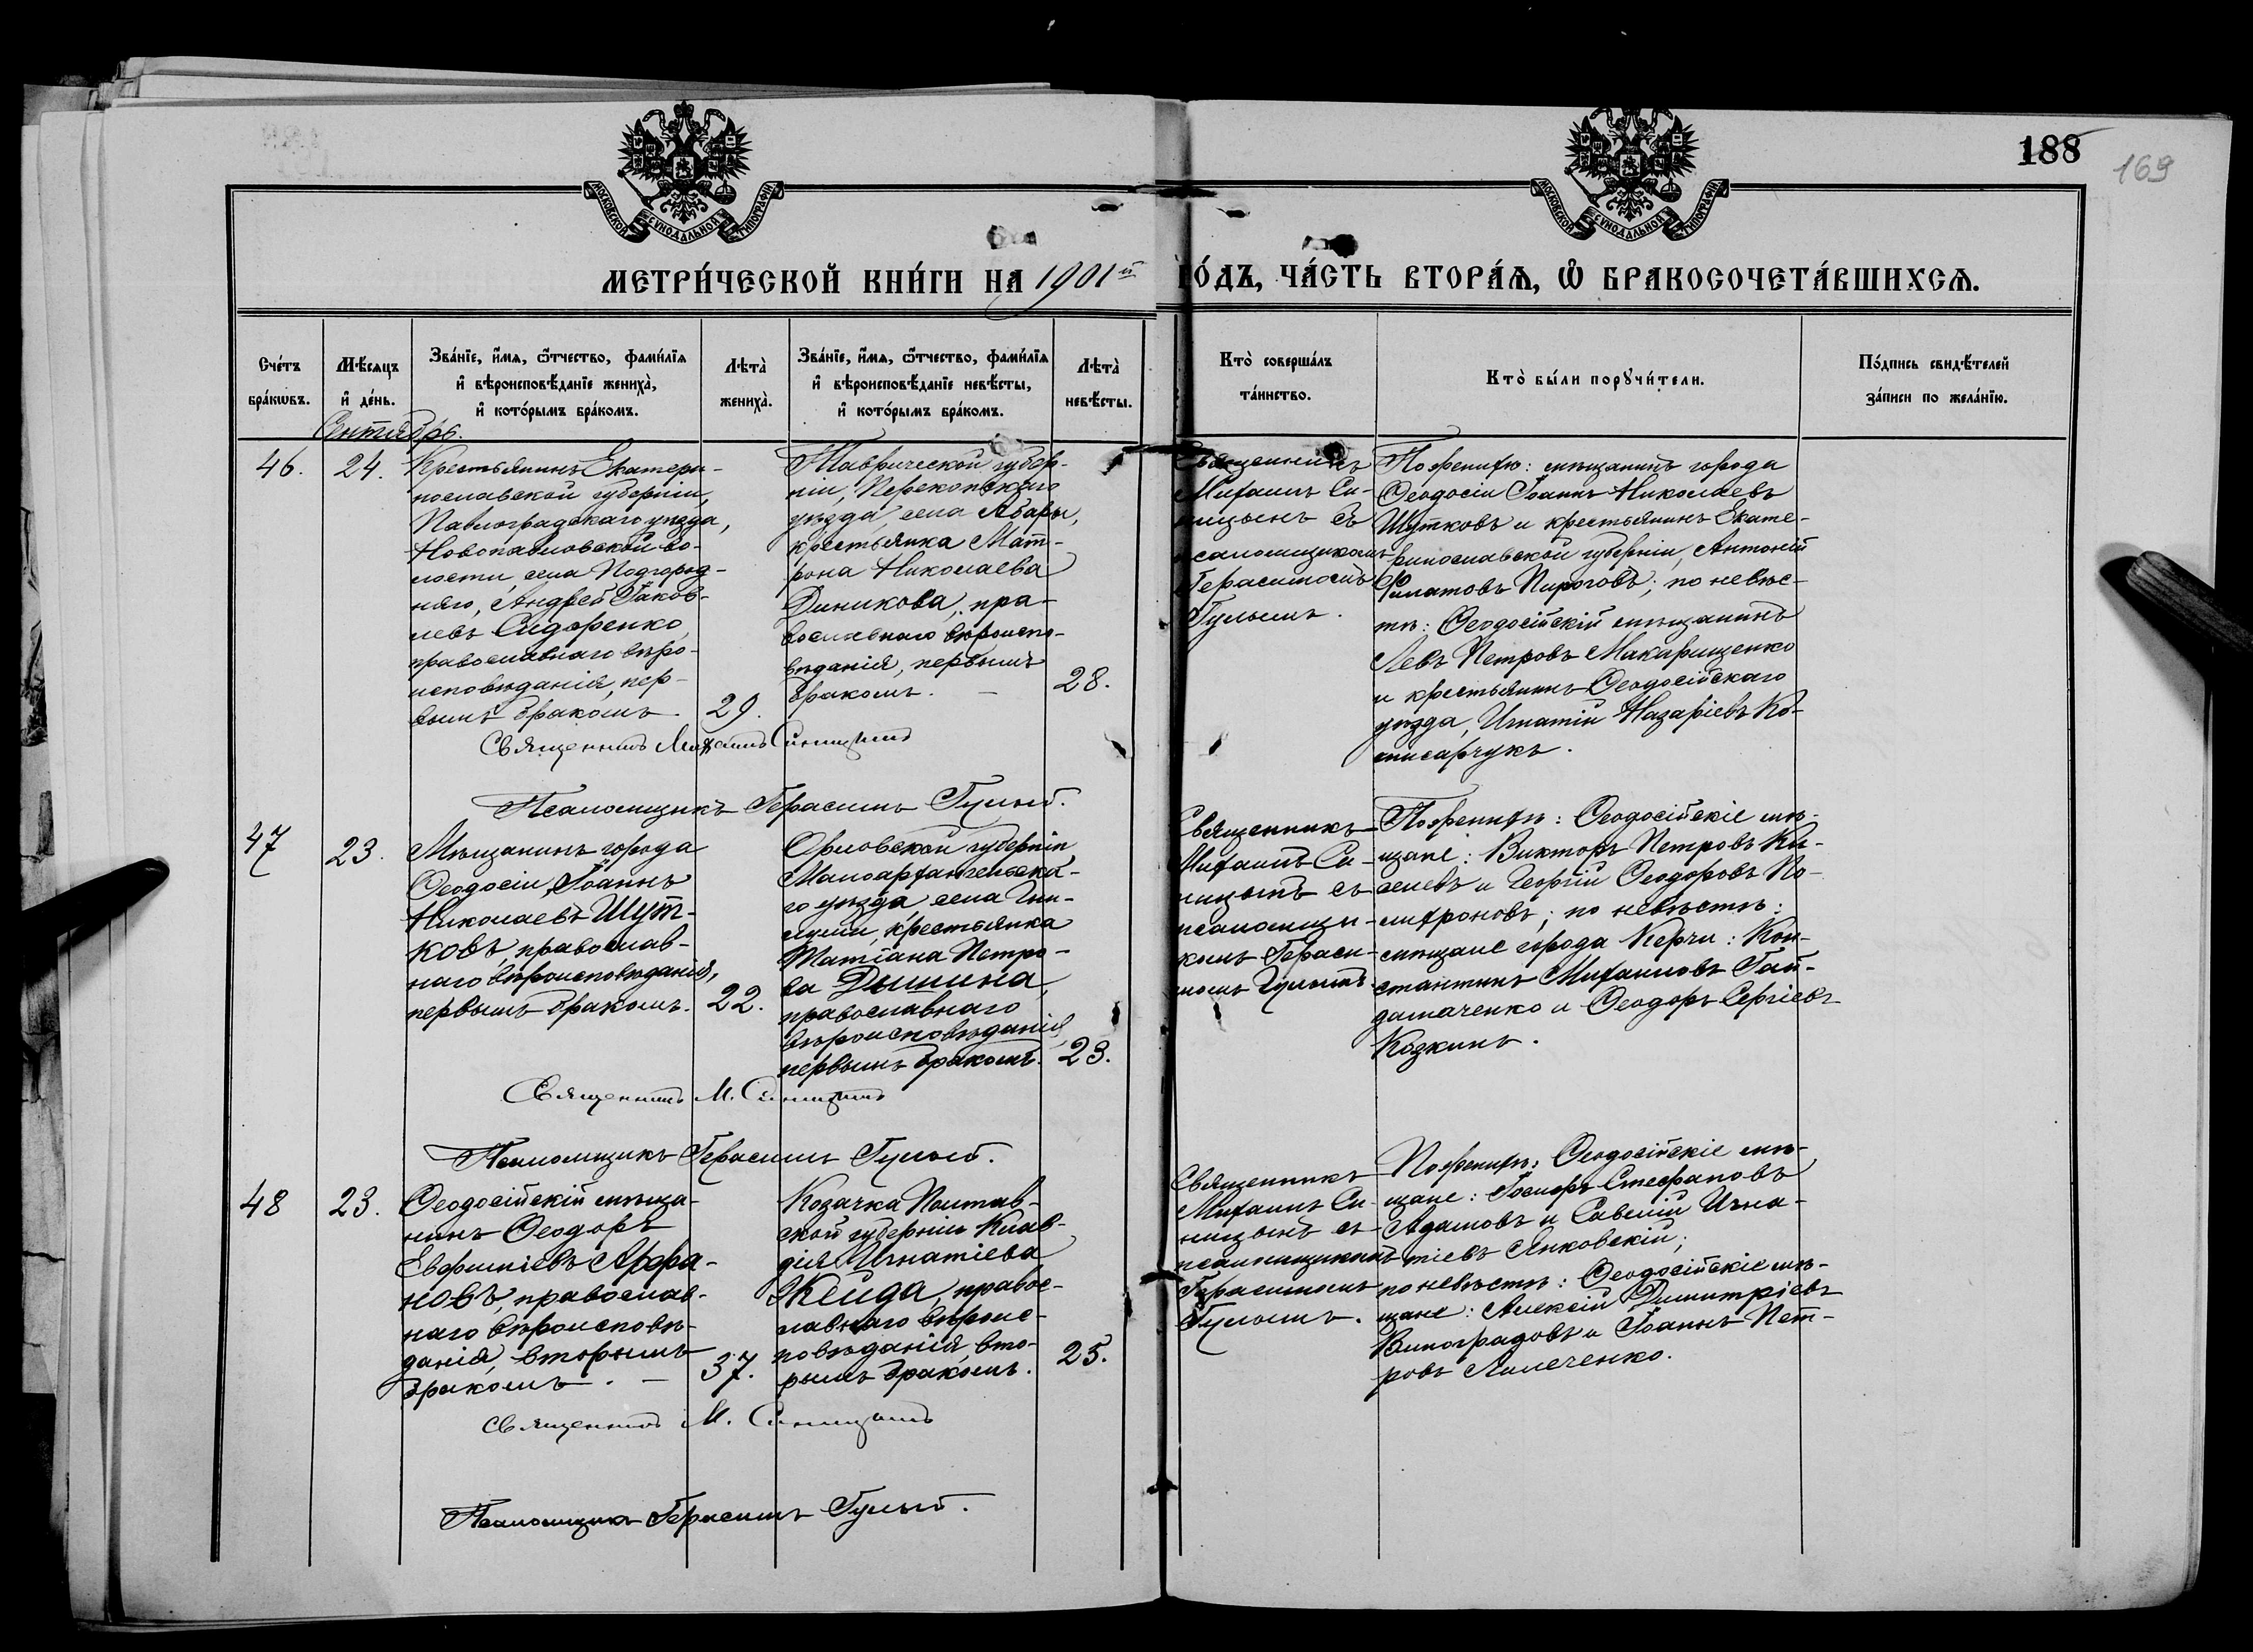 188
169
МОСКОВСКОЙ СѴНОДАЛЬНОЙ ТИПОГРАФІИ
МОСКОВСКОЙ СѴНОДАЛЬНОЙ ТИПОГРАФІИ
МЕТРИ́ЧЕСКОЙ КНИ́ГИ НА 1901й ГО́ДЪ, ЧА́СТЬ ВТОРА́Ѧ, Ѽ БРАКОСОЧЕТА́ВШИХСѦ.
Сче́тъ
бра́кѡвъ.
Мѣ́сяцъ
и҆ де́нь.
Зва́нїе, и҆́мѧ, ѻ҆́тчество, фами́лїѧ
и҆ вѣроисповѣ́данїе жениха̀,
и҆ кото́рымъ бра́комъ.
Лѣта̀
жениха̀.
Зва́нїе, и҆́мѧ, ѻ҆́тчество, фами́лїѧ
и҆ вѣроисповѣ́данїе невѣ́сты,
и҆ кото́рымъ бра́комъ.
Лѣта̀
невѣ́сты.
Кто̀ соверша́лъ
та́инство.
Кто̀ бы́ли порꙋчи́тели.
По́дпись свидѣ́телей
за́писи по жела́нїю.
Сентябрь.
46.
24.
Крестьянинъ Екатери-
нославской губерніи,
Павлоградскаго уѣзда,
Новопавловской во-
лости, села Подгород-
няго, Андрей Іаков-
левъ Сидоренко,
православнаго вѣро-
исповѣданія, пер-
вымъ бракомъ.
29.
Таврической губер-
ніи, Перекопскаго
уѣзда, села Абары,
крестьянка Мат-
рона Николаева
Диникова, пра-
вославнаго вѣроиспо-
вѣданія, первымъ
бракомъ. —
28.
Священникъ
Михаилъ Си-
ницынъ съ
псаломщикомъ
Герасимомъ
Гулымъ.
По женихѣ: мѣщанинъ города
Ѳеодосіи Іоаннъ Николаевъ
Шутковъ и крестьянинъ Екате-
ринославской губерніи, Антоній
Филатовъ Пироговъ; по невѣс-
тѣ: Ѳеодосійскій мѣщанинъ
Левъ Петровъ Макарищенко
и крестьянинъ Ѳеодосійскаго
уѣзда, Игнатій Назаріевъ Ко-
мисарчукъ.
Священникъ Михаилъ Синицынъ
Псаломщикъ Герасимъ Гулый.
47
23.
Мѣщанинъ города
Ѳеодосіи, Іоаннъ
Николаевъ Шут-
ковъ, православ-
наго вѣроисповѣданія,
первымъ бракомъ.
22.
Орловской губерніи
Малоархангельска-
го уѣзда села
крестьянка
Татіана Петро-
ва Дышина,
православнаго
вѣроисповѣданія,
первымъ бракомъ.
23.
Священникъ
Михаилъ Си-
ницынъ съ
псаломщи-
комъ Гераси-
момъ Гулымъ.
По женихѣ: Ѳеодосійскіе мѣ-
щане: Викторъ Петровъ Ки-
селевъ и Георгій Ѳеодоровъ По-
лихроновъ; по невѣстѣ:
мѣщане города Керчи: Кон-
стантинъ Михаиловъ Гай-
дамаченко и Ѳеодоръ Сергіевъ
Козкинъ.
Священникъ М. Синицынъ
Псаломщикъ Герасимъ Гулый.
48
23.
Ѳеодосійскій мѣща-
нинъ Ѳеодоръ
Евфиміевъ Арфа-
новъ, православ-
наго вѣроисповѣ-
данія, вторымъ
бракомъ. —
37.
Козачка Полтав-
ской губерніи Клав-
дія Игнатіева
Жейда, правос-
лавнаго вѣроис-
повѣданія, вто-
рымъ бракомъ.
25.
Священникъ
Михаилъ Си-
ницынъ съ
псаломщикомъ
Герасимомъ
Гулымъ.
По женихѣ: Ѳеодосійскіе мѣ-
щане: Іосифъ Стефановъ
Адамовъ и Савелій Игна-
тіевъ Янковскій;
по невѣстѣ: Ѳеодосійскіе мѣ-
щане: Алексій Димитріевъ
Виноградовъ и Іоаннъ Пет-
ровъ
Священникъ М. Синицынъ
Псаломщикъ Герасимъ Гулый.